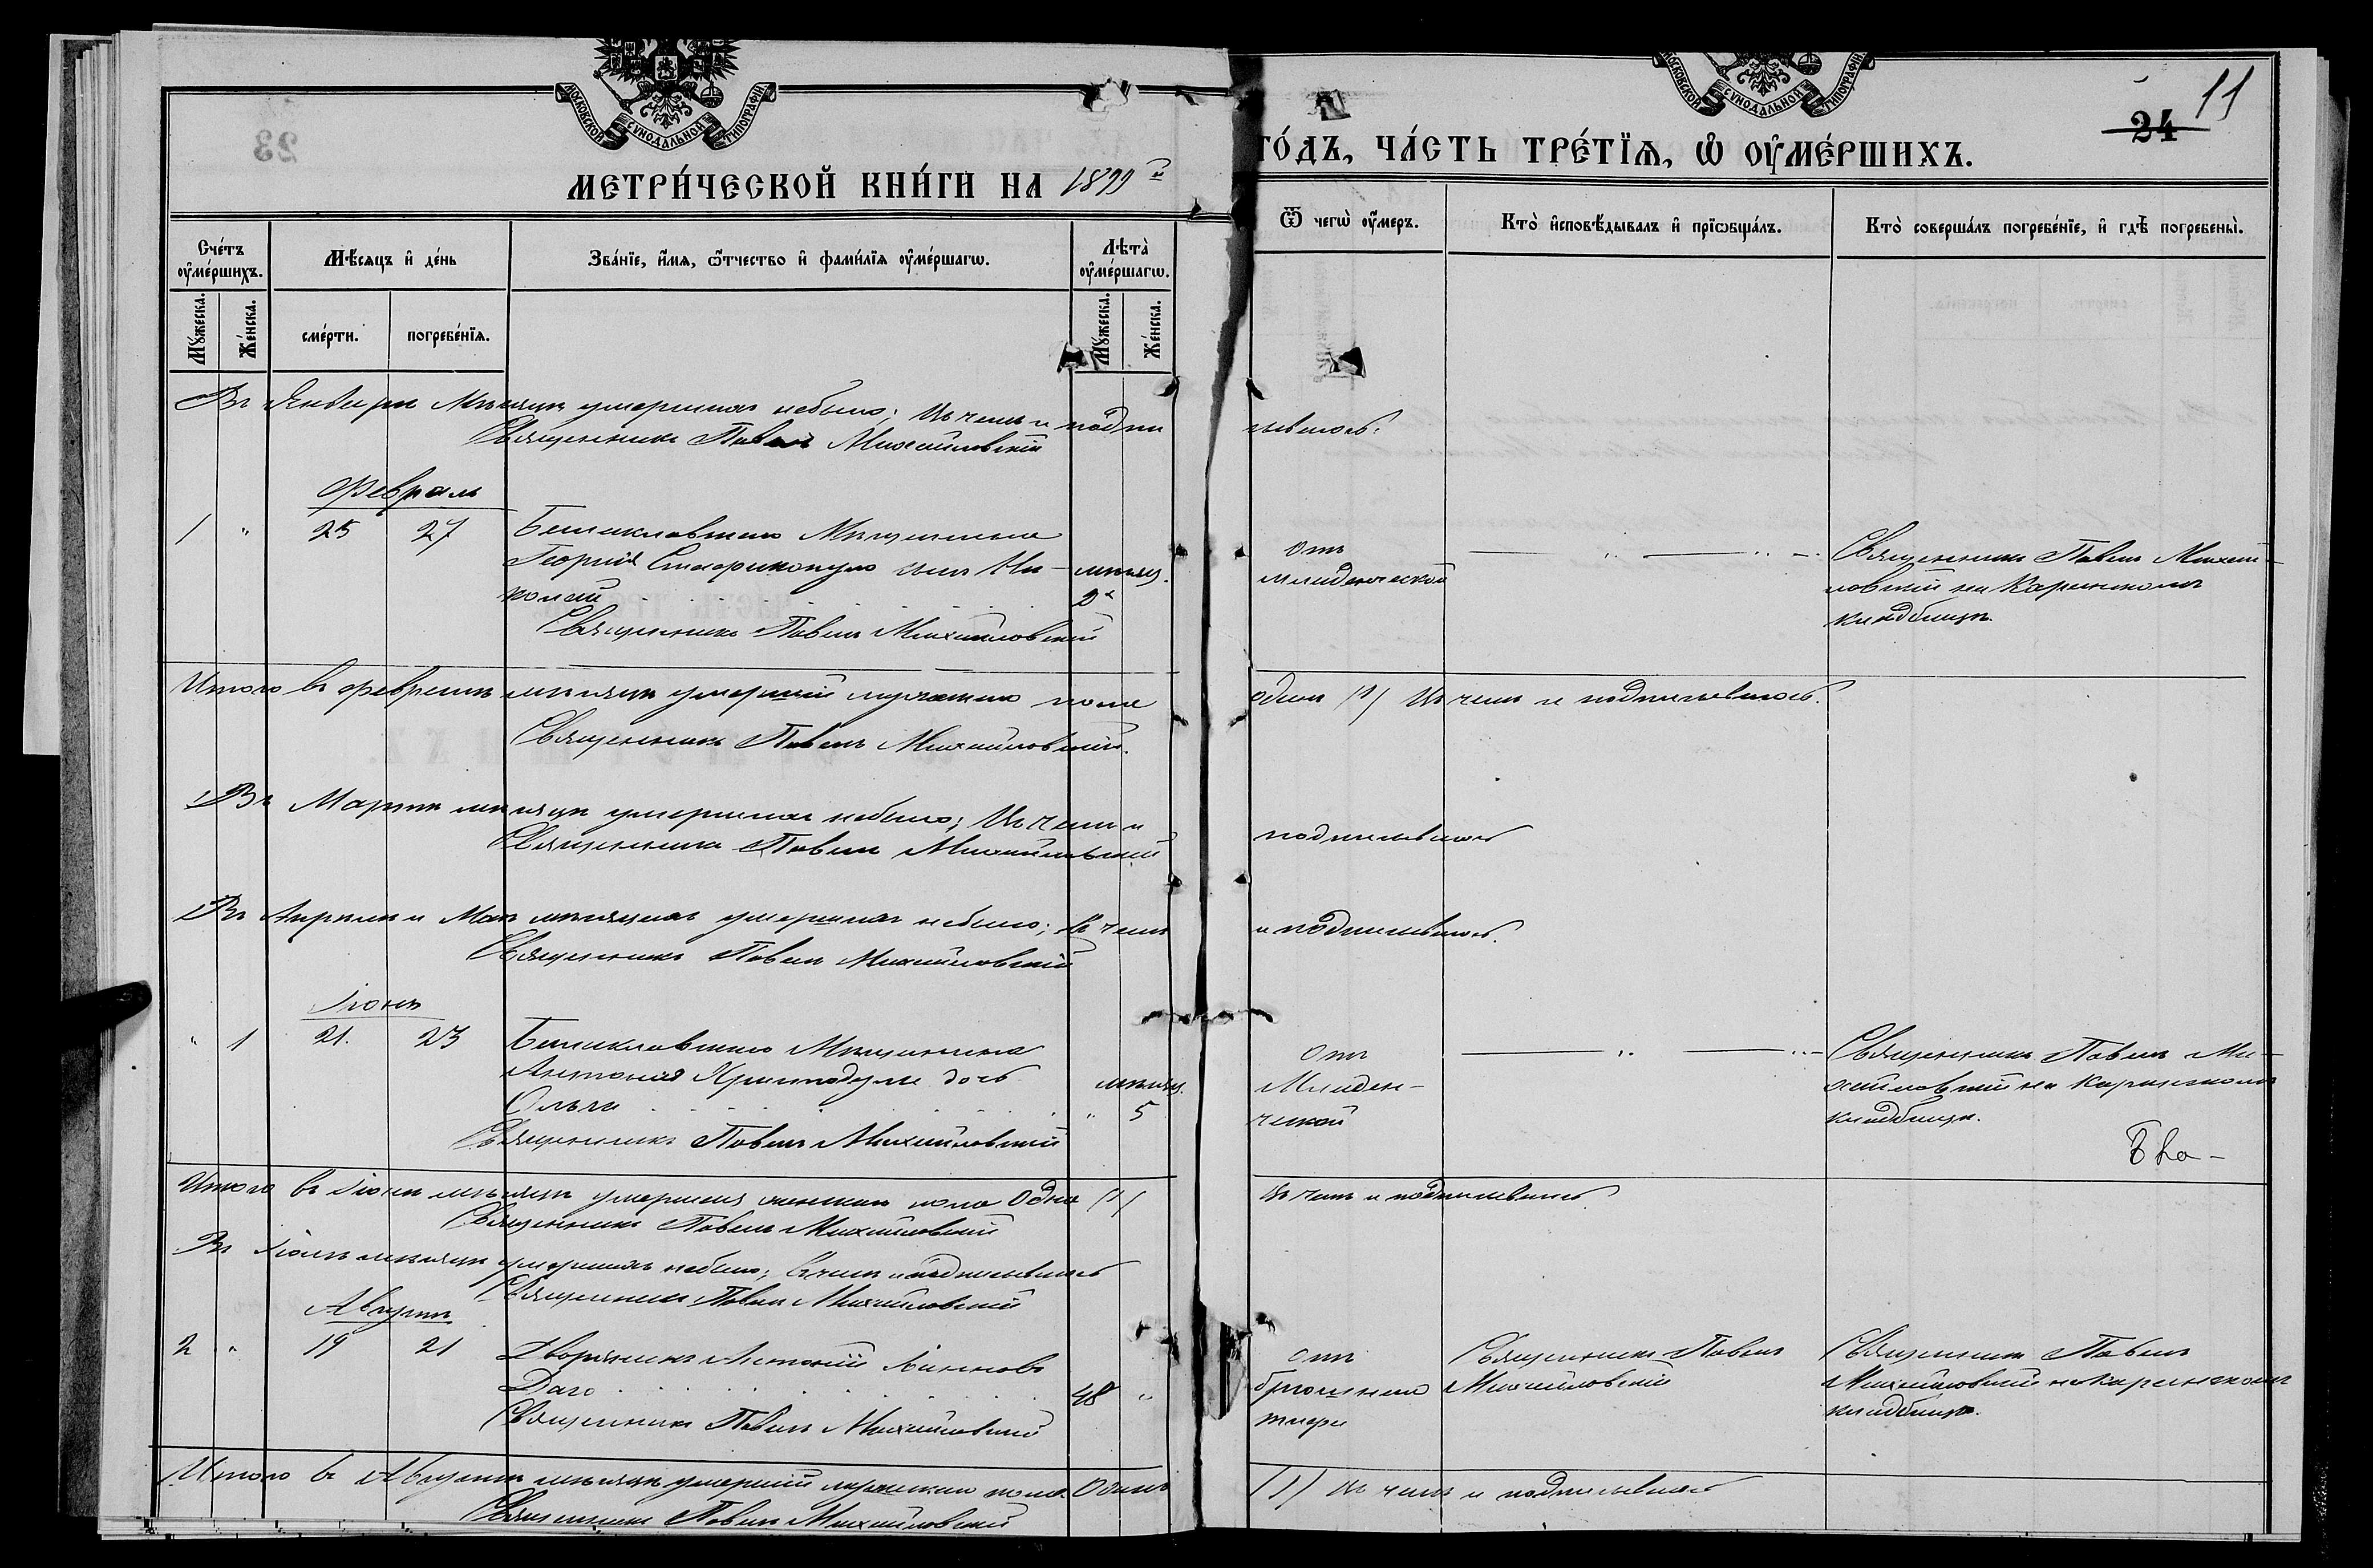 МОСКОВСКОЙ СѴНОДАЛЬНОЙ ТИПОГРАФІИ
23
МЕТРИ́ЧЕСКОЙ КНИ́ГИ НА 1899й
Сче́тъ ᲂу҆ме́ршихъ.
Мѣ́сяцъ и҆ де́нь
Зва́нїе, и҆́мѧ, ѻ҆́тчество и҆ фами́лїѧ ᲂу҆ме́ршагѡ.
Лѣ́та ᲂу҆ме́ршагѡ.
Мꙋ́жеска.
Же́нска.
сме́рти.
погребе́нїѧ.
Мꙋ́жеска.
Же́нска.
Въ Январѣ Мѣсяцѣ умершихъ небыло; Въ чемъ и подпи
Священникъ Павелъ Михайловскій
Февраль
1 " 25 27 Мѣщанина
Георгія сынъ Ни- мѣсяц.
колай 2х
Священникъ Павелъ Михайловскій
Итого въ Февралѣ мѣсяцѣ умершій мужеска пола
Священникъ Павелъ Михайловскій.
Въ Мартѣ мѣсяцѣ умершихъ небыло; Въ чемъ и
Священникъ Павелъ Михайловскій
Въ Апрѣлѣ и Маѣ мѣсяцахъ умершихъ небыло; въ чемъ
Священникъ Павелъ Михайловскій
Іюнь
" 1 21. 23 Мѣщанина
Антонія дочь мѣсяц.
Ольга " 5
Священникъ Павелъ Михайловскій
Итого въ Іюнѣ мѣсяцѣ умершихъ женска пола Одна /1/
Священникъ Павелъ Михайловскій
Въ Іюлѣ мѣсяцѣ умершихъ небыло; въ чемъ и подписываюсь
Священникъ Павелъ Михайловскій
Августъ
2 " 19 21 Дворянинъ Антоній
Даго 48 "
Священникъ Павелъ Михайловскій
Итого въ Августѣ мѣсяцѣ умершій мужеска пола Одинъ
Священникъ Павелъ Михайловскій
МОСКОВСКОЙ СѴНОДАЛЬНОЙ ТИПОГРАФІИ
24 11
ГО́ДЪ, ЧА́СТЬ ТРЕ́ТЇѦ, Ѡ҆ ОУ҆МЕ́РШИХЪ.
Ѿ чегѡ̀ ᲂу҆́меръ.
Кто̀ и҆сповѣ́дывалъ и҆ прїѡбща́лъ.
Кто̀ соверша́лъ погребе́нїе, и҆ гдѣ̀ погребены̀.
сываюсь.
отъ младенческой
Священникъ Павелъ Михай-
ловскій на Каранскомъ
кладбищѣ.
одинъ /1/ Въ чемъ и подписываюсь.
подписываюсь
и подписываюсь.
отъ
Младен-
ческой
Священникъ Павелъ Ми-
хайловскій на Каранскомъ
кладбищѣ.
Въ чемъ и подписываюсь.
отъ
брюшнаго
тифа
Священникъ Павелъ
Михайловскій
Священникъ Павелъ
Михайловскій на Каранскомъ
кладбищѣ.
/1/ Въ чемъ и подписываюсь